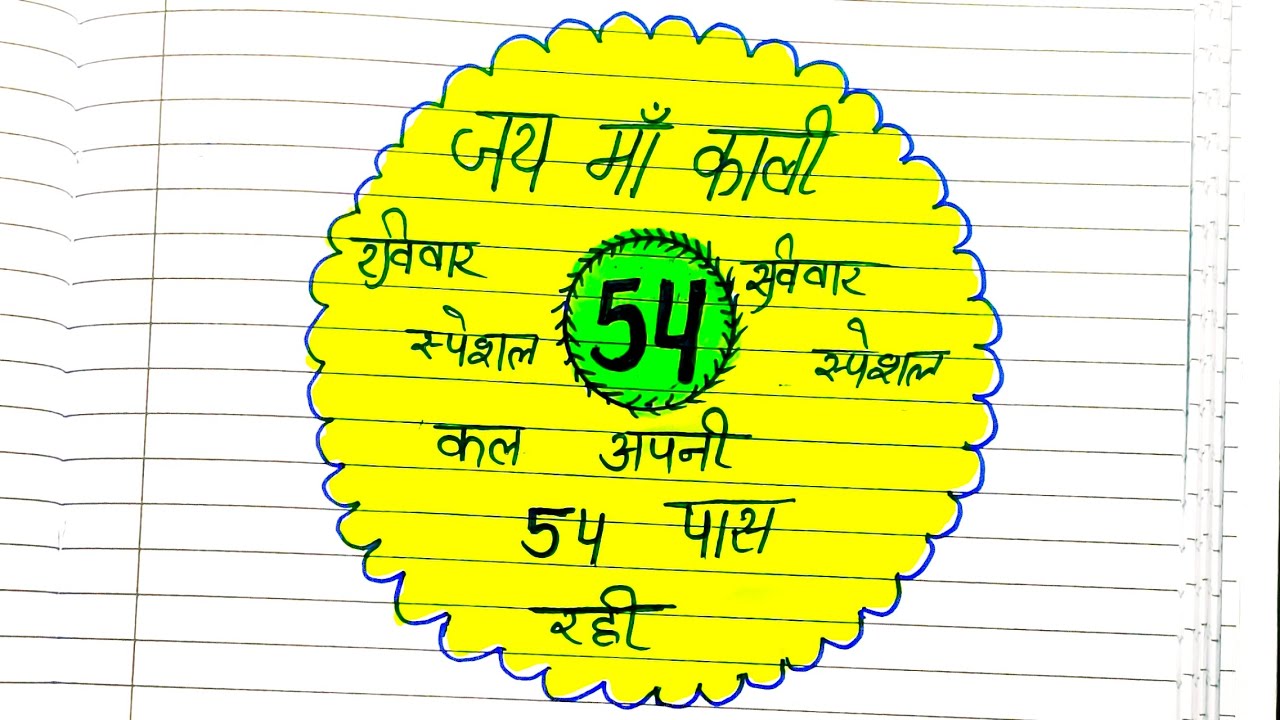 जय माँ काली
रविवार
स्पेशल
54
रविवार
स्पेशल
कल अपनी
54 पास
रही